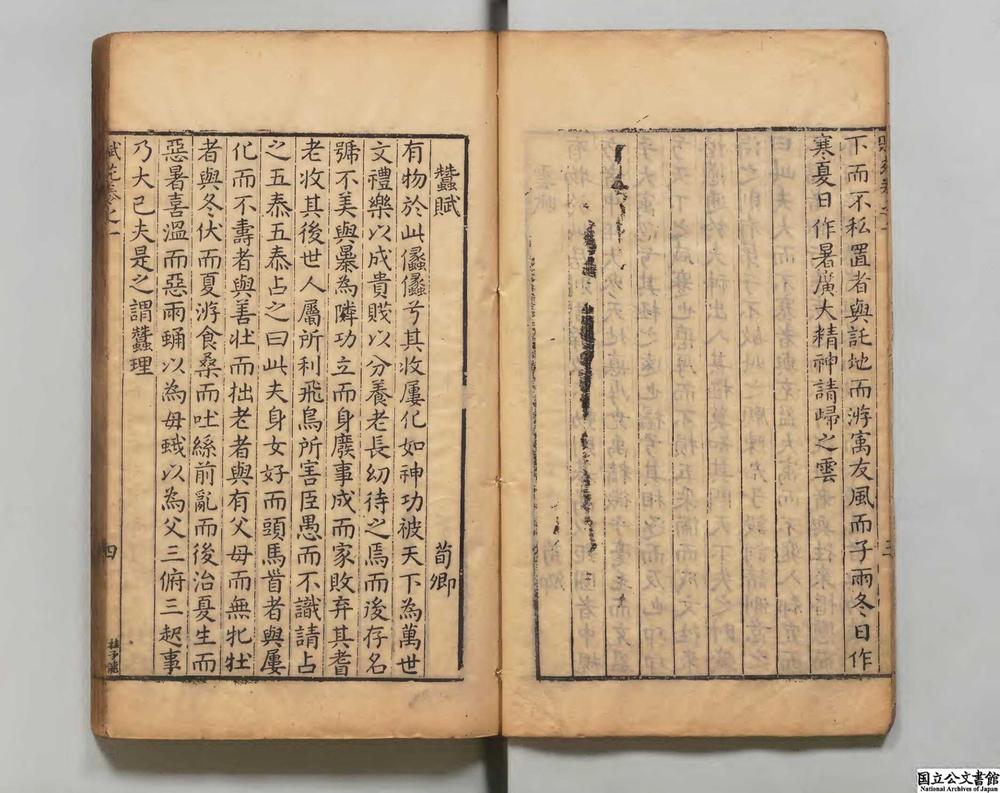 下而不私置者與託地而游寓友風而子雨冬日作
寒夏日作暑廣大精神請歸之雲
蠶賦 荀卿
有物於此㒩㒩兮其收屢化如神功被天下為萬世
文禮樂以成貴賤以分養老長幼待之焉而後存名
號不美與暴為隣功立而身廢事成而家敗弃其耆
老收其後世人屬所利飛鳥所害臣愚而不識請占
之五泰五泰占之曰此夫身女好而頭馬首者與屢
化而不壽者與善壯而拙老者與有父母而無牝牡
者與冬伏而夏游食桑而吐絲前亂而後治夏生而
惡暑喜溫而惡雨蛹以為母蛾以為父三俯三起事
乃大已夫是之謂蠶理
賦苑卷之一
四
国立公文書館
National Archives of Japan